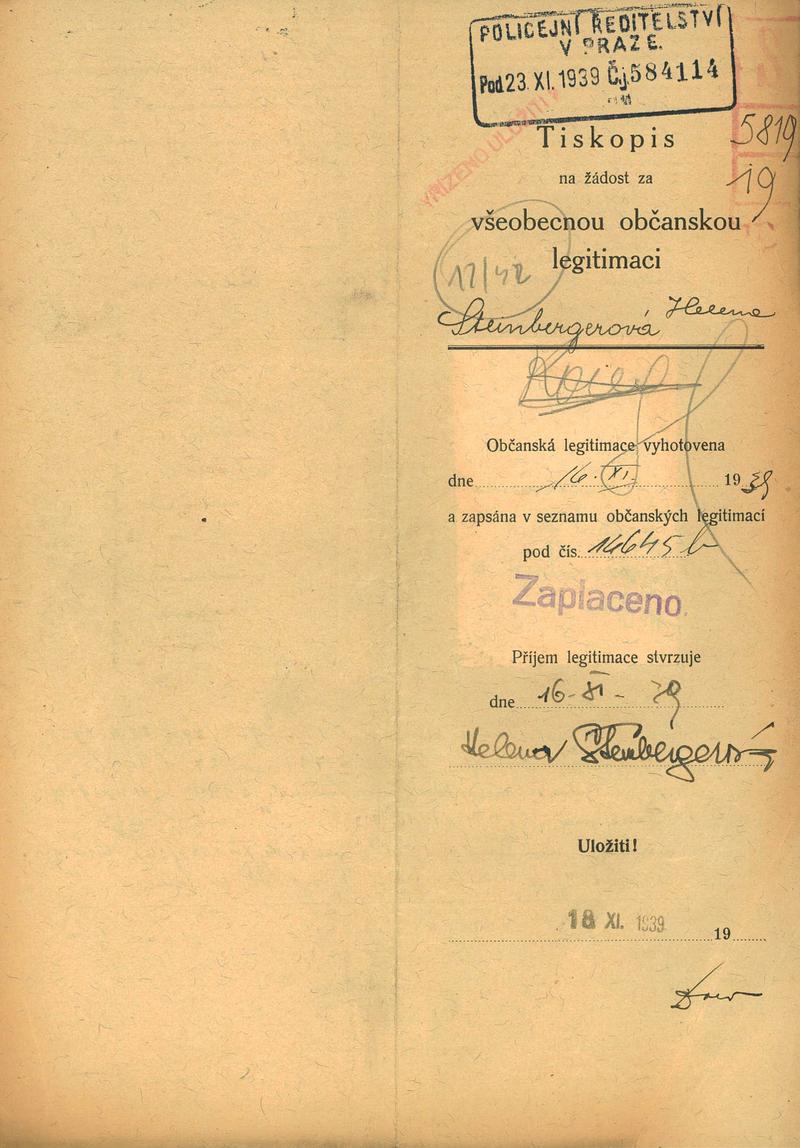 POLICEJNÍ ŘEDITELSTVÍ
V PRAZE.
Pod 23. XI. 1939 Čj. 584114
VYŘÍZENO ULOŽITI
Tiskopis
5819
na žádost za
19
všeobecnou občanskou
legitimaci
17/42
Steinbergerová Helena
Občanská legitimace vyhotovena
dne 16. XI. 1939
a zapsána v seznamu občanských legitimací
pod čís. 14645 b
Zaplaceno
Příjem legitimace stvrzuje
dne 16 - XI - 39
Helena Steinbergerová
Uložiti!
18 XI. 1939
19